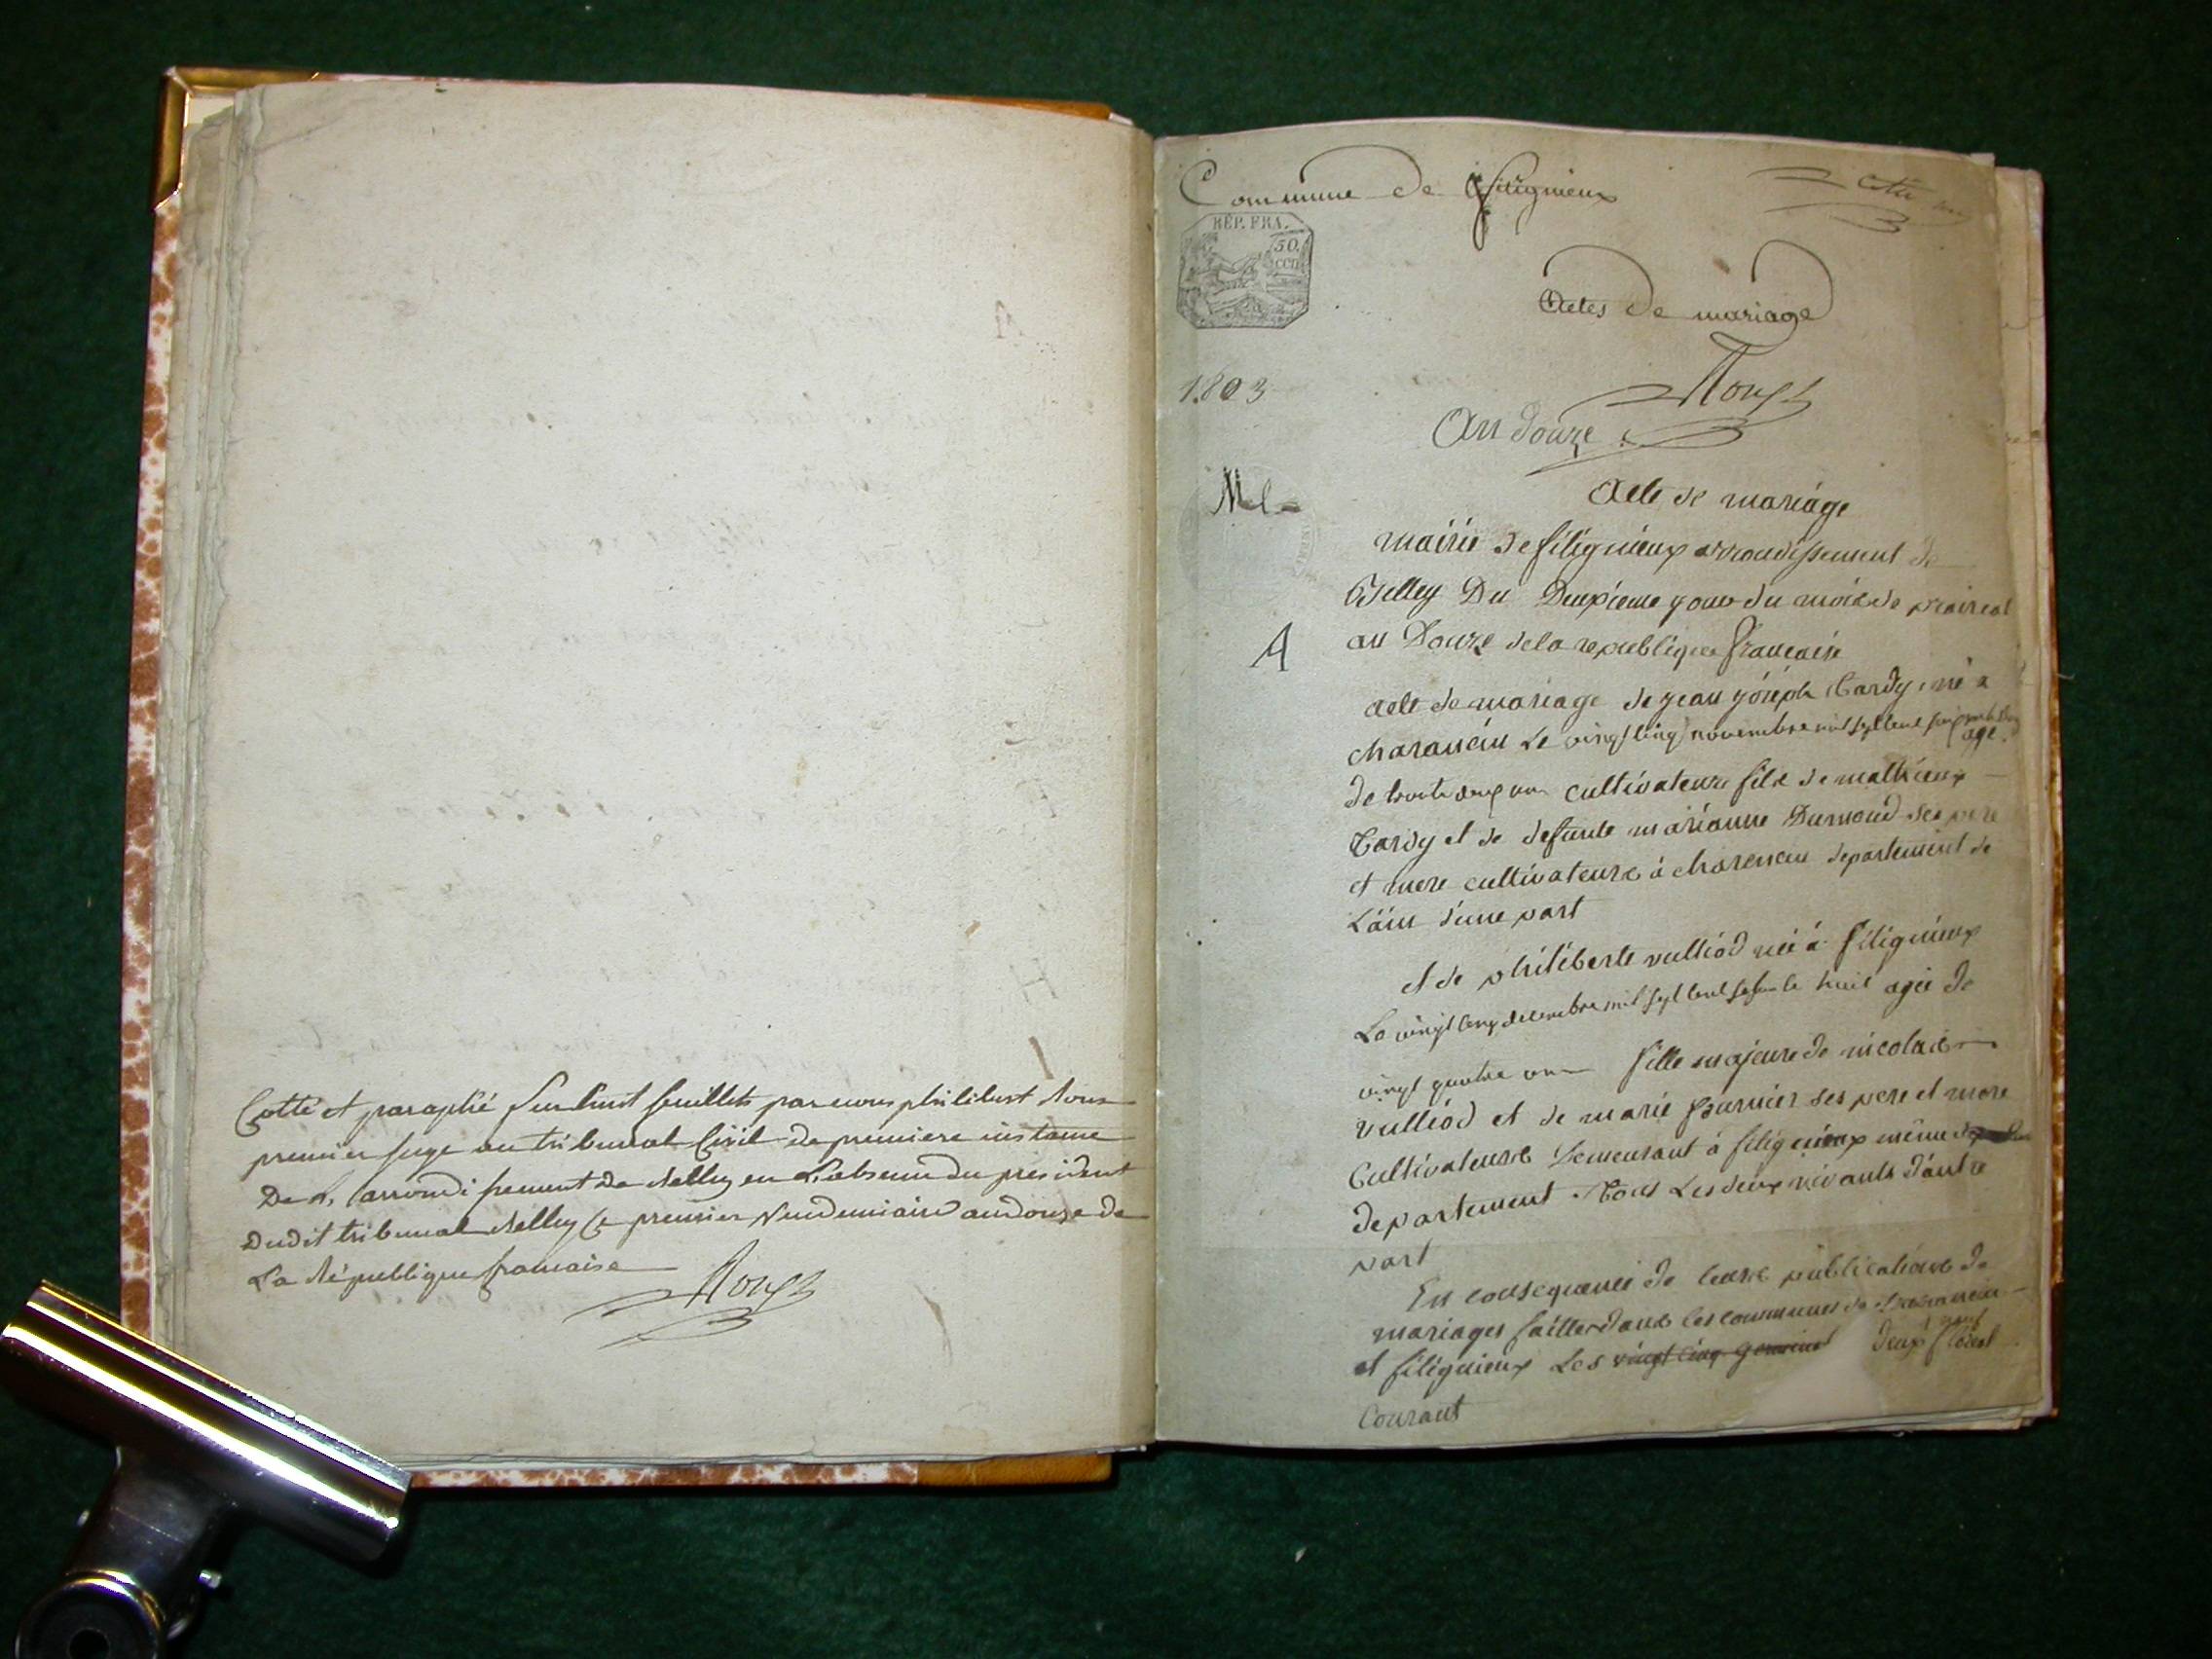 Cotté et paraphé sur huit feuillets par nous philibert Roux
premier juge au tribunal Civil de premiere instance
De L'arrondissement de Belley en L'absence du president
Dudit tribunal Belley Le premier Vendemiaire an douze de
La République francaise
Commune de filignieux
RÉP. FRA.
50.
cen
Actes De mariage
1803
An douze
Acte de mariage
mairie de filignieux arrondissement de
Belley Du Deuxieme jour du mois de prairial
an Douze de la republique francaise
A
acte de mariage de jean joseph Tardy né a
charancin Le vingt cinq novembre mil sept cent
agé
de trente deux ans cultivateur fils de mathieux
Tardy et de defunte marianne Dumond ses pere
et mere cultivateurs à charencin departement de
L'ain d'une part
et de philiberte vulliod née à filignieux
Le vingt cinq decembre mil sept cent soixante huit agée de
vingt quatre ans fille majeure de nicolas
vulliod et de marie fournier ses pere et mere
Cultivateurs Demeurant à filignieux même
departement Tous Les deux vivants d'autre
part
En consequence de leurs publications de
mariages faittes dans les communes de charancin
et filignieux Les vingt cinq germinal deux floreal
Courant